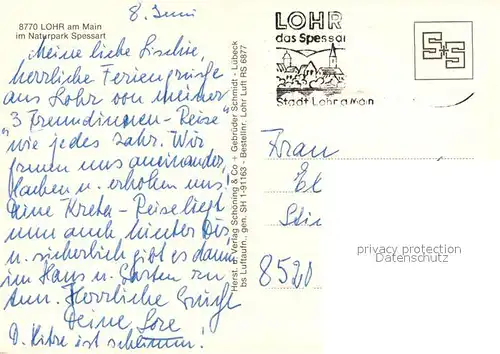 8770 LOHR am Main
im Naturpark Spessart
8. Juni
Meine liebe
herrliche Feriengrüße
aus Lohr von meiner
"3 Freundinnen-Reise"
wie jedes Jahr. Wir
freuen uns aneinander,
u. erholen uns!
Deine Kreta-Reise liegt
nun auch hinter Dir
u. sicherlich gibt es dann
im Haus u. Garten zu
tun. Herrliche Grüße
Deine Lore
D. Hitze ist schlimm!
Herst. u. Verlag Schöning & Co + Gebrüder Schmidt - Lübeck
bs Luftaufn., gen. SH 1-91163 - Bestellnr. Lohr Luft RS 6877
LOHR
das Spessar
Stadt Lohr a Main
S+S
Frau
El
8520
privacy protection
Datenschutz